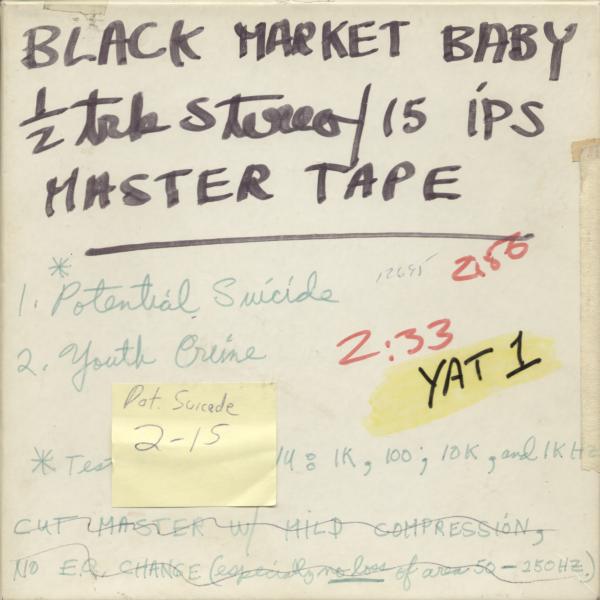 BLACK MARKET BABY
1/2 trk Stereo/15 IPS
MASTER TAPE
*
1. Potential Suicide 2:56
2. Youth Crime 2:33
YAT 1
Pot. Suicade
2-15
* Test : 1K, 100; 10K, and 1K HZ
CUT MASTER W/ MILD COMPRESSION,
NO E.Q. CHANGE (especially no loss of area 50 - 250HZ.)